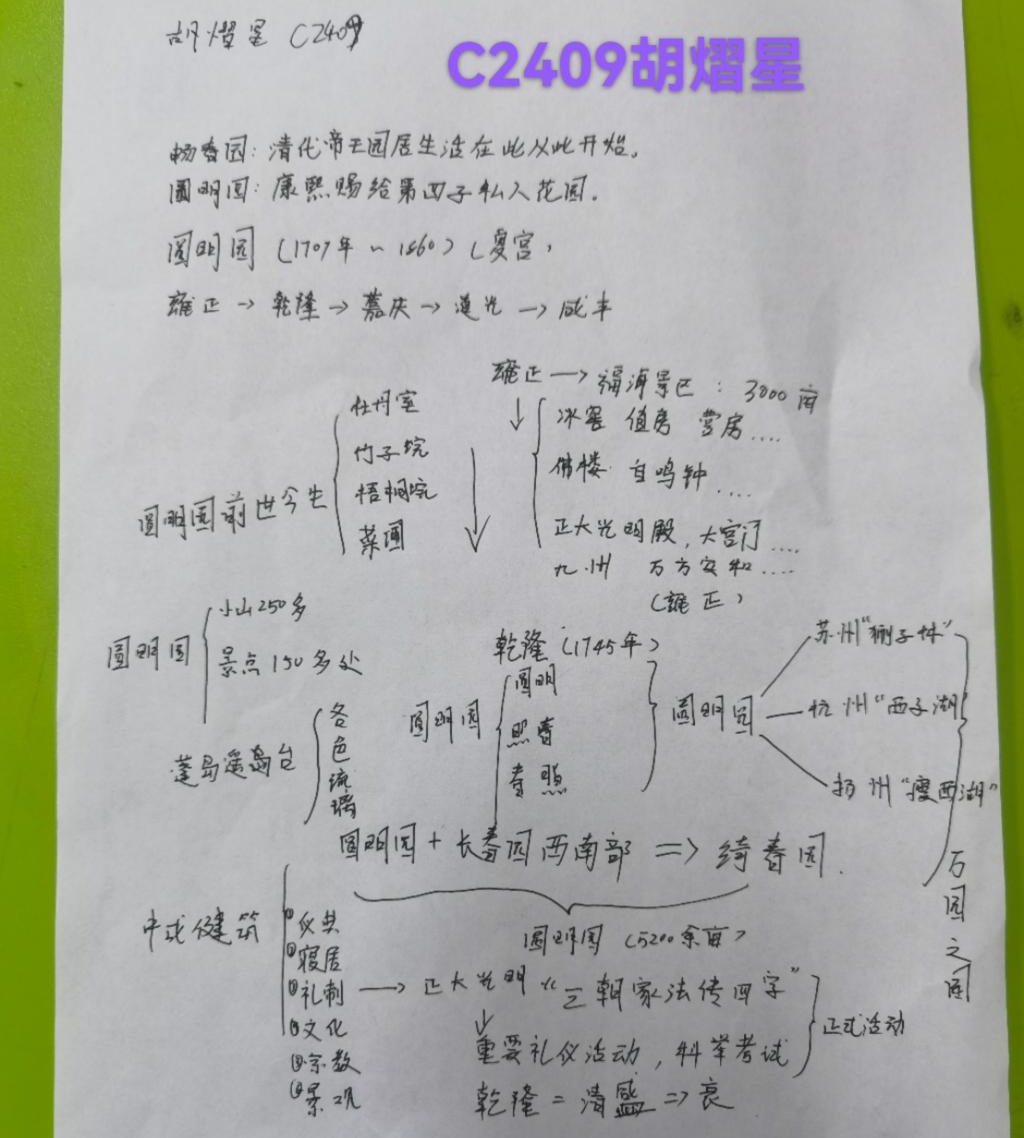 胡熠星 C2409
C2409胡熠星
畅春园：清代帝王园居生活在此从此开始。
圆明园：康熙赐给第四子私人花园。
圆明园（1707年～1860）（夏宫）
雍正→乾隆→嘉庆→道光→咸丰
圆明园前世今生
牡丹室
竹子院
梧桐院
菜圃
雍正→福海景区：3000亩
冰窖 值房 营房....
佛楼 自鸣钟....
正大光明殿，大宫门....
九州 万方安和....
（雍正）
圆明园
小山250多
景点150多处
蓬岛瑶台
各色琉璃
乾隆（1745年）
圆明园
圆明
照春
春照
圆明园
苏州“狮子林”
杭州“西子湖
扬州“瘦西湖”
万园之园
圆明园+长春园西南部=>绮春园.
圆明园（5200余亩）
中式建筑
仪典
寝居
礼制→正大光明“三朝家法传四字”
文化
宗教
景观
重要礼仪活动，科举考试
正式活动
乾隆=清盛=>衰